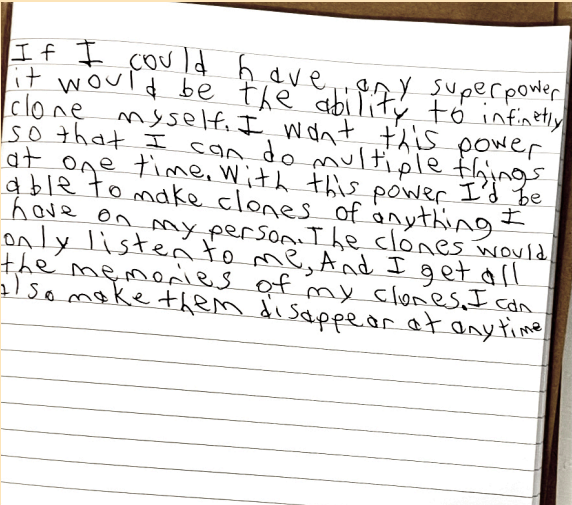 If I could have any superpower
it would be the ability to infinetly
clone myself. I want this power
so that I can do multiple things
at one time. With this power I'd be
able to make clones of anything I
have on my person. The clones would
only listen to me, And I get all
the memories of my clones. I can
also make them disappear at anytime